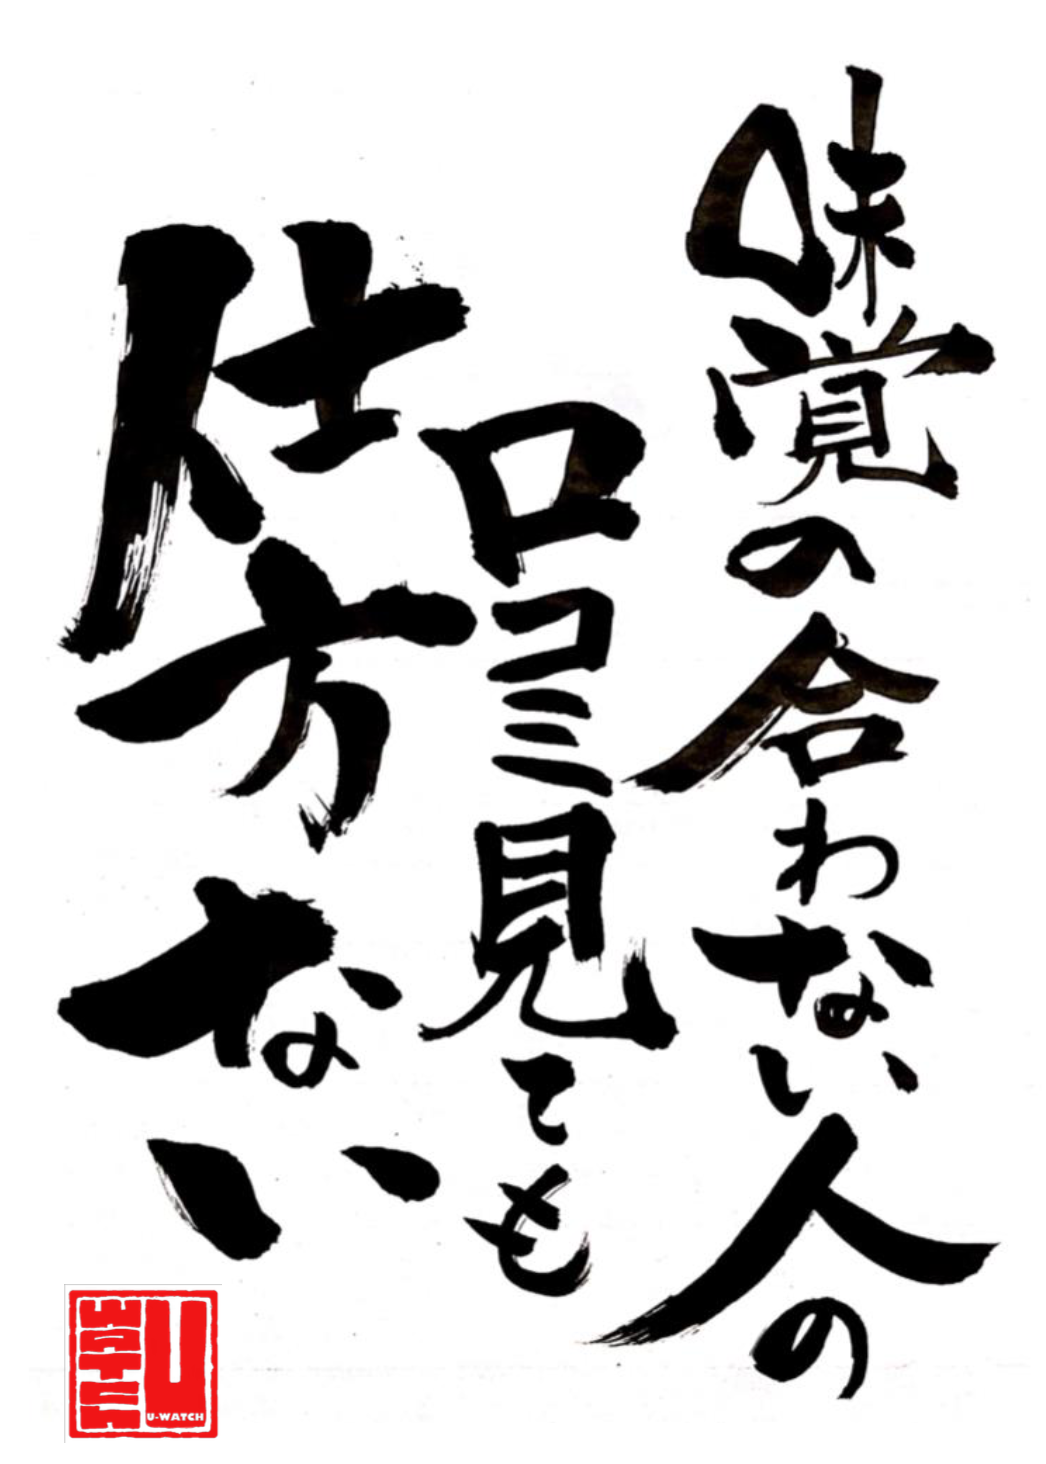 味覚の合わない人の
口コミ見ても
仕方ない
U WATCH
U-WATCH